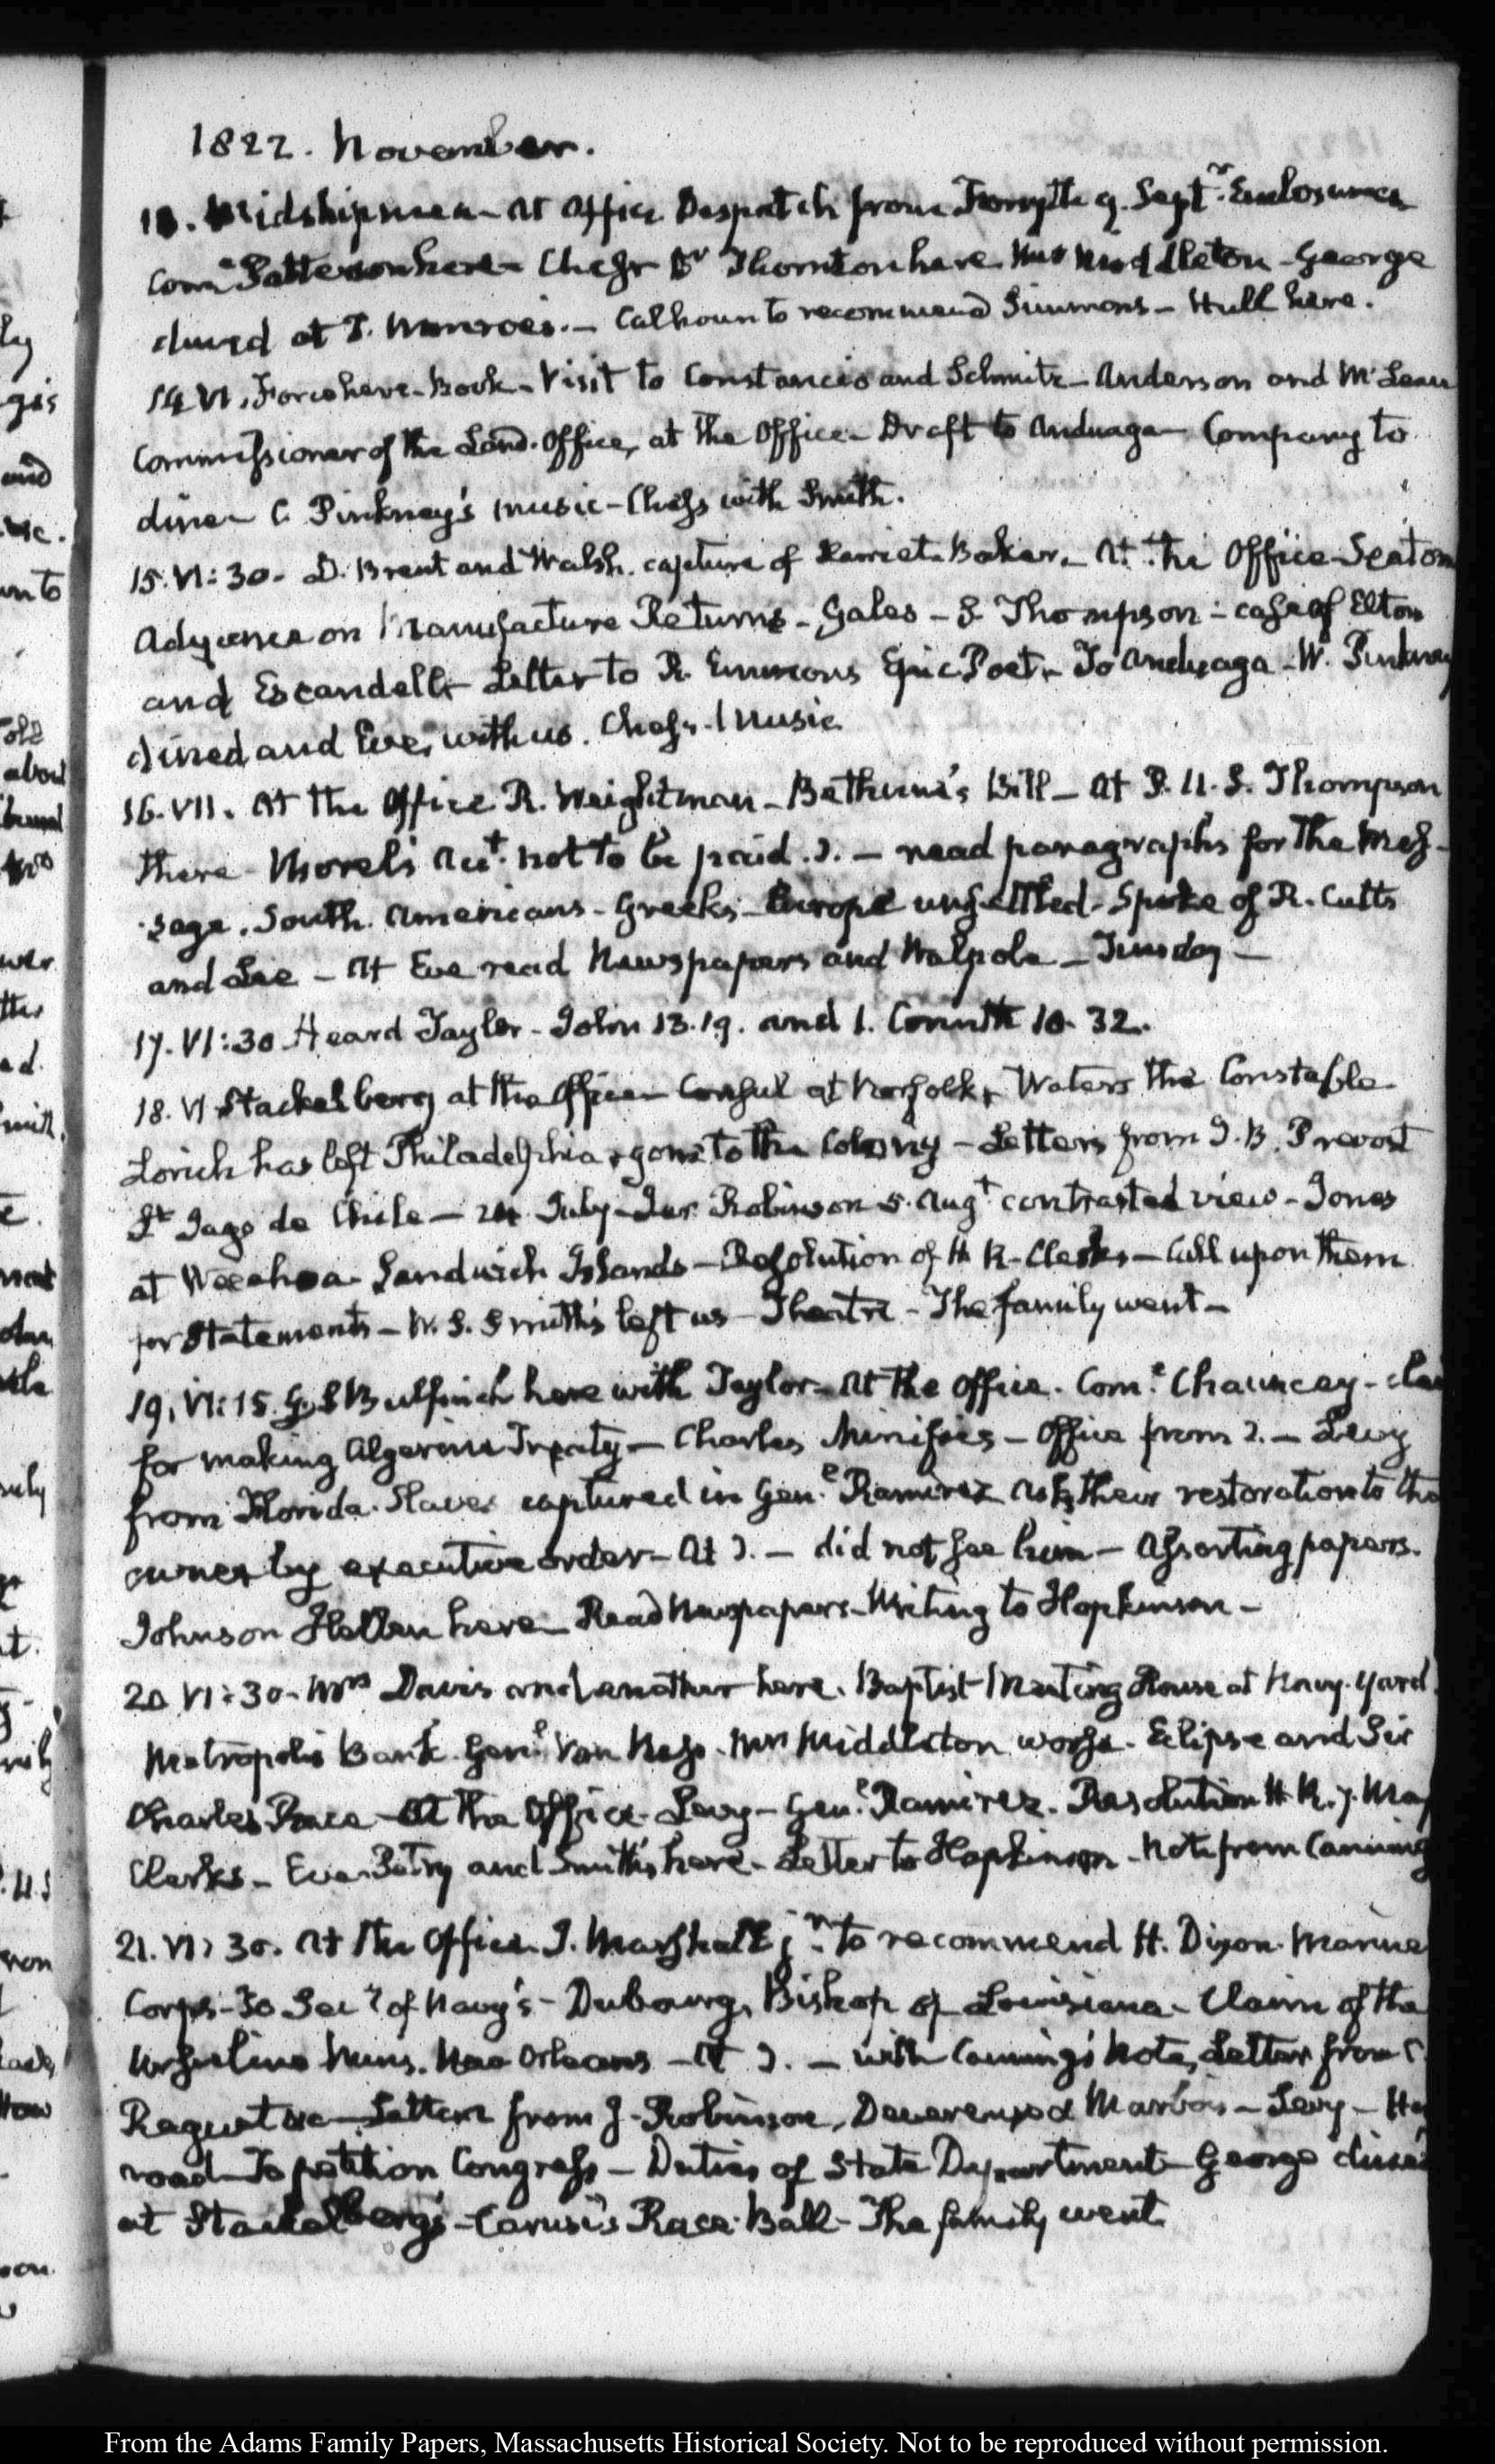 1822. November.
Midshipmen - At Office Despatch from Forsyth 9. Septr. Enclosures
Come Patterson here - Chess Dr Thornton here Mrs Middleton - George
dined at J. Monroe's. - Calhoun to recommend Simmons - Hull here.
14 VI. Force here - Book - Visit to Constancio and Schmitz - Anderson and McLean
Commissioner of the Land Office, at the Office - Draft to Anduaga - Company to
dine - C. Pinkney's music - Chess with Smith.
15. VI:30. D. Brent and Walsh. capture of Baker. At the Office Seaton
on Manufacture Returns - Gales - S. Thompson - case of Elton
and Escandell - Letter to R. Emmons Epic Poet. To Anduaga - W. Pinkney
dined and Eve, with us. Chess. Music
16. VII. At the Office R. Weightman - Bethune's Bill - At P. U. S. Thompson
there - Morel's Act. not to be paid. ). - read paragraphs for the Mes-
sage. South Americans - Greeks - Europe unsettled - Spoke of R. Cutts
and Lee - At Eve read Newspapers and Walpole - Tuesday -
17. VI:30 Heard Taylor - John 13. 19. and 1. Corinth 10. 32.
18. VI Stackelberg at the Office - Consul at Norfolk, Waters the Constable
Lorich has left Philadelphia, gone to the Colony - Letters from J. B. Prevost
St Jago de Chile - 24 July - Jer. Robinson 5. Augt contrasted view - Jones
at Woahoa Sandwich Islands - Resolution of H. R. Clerks - Call upon them
for Statements - W. S. Smith's left us - Theatre - The family went -
19. VI:15. G. S. Bulfinch here with Taylor - At the office. Come. Chauncey -
for making Algerine Treaty - Charles Minifies - Office from 2. - Levy
from Florida. Slaves captured in Genl. Ramirez asks their restoration to the
owner by executive order - At ). - did not see him - Assorting papers.
Johnson Hellen here - Read Newspapers - Writing to Hopkinson -
20 VI:30. Mrs Davis and another here. Baptist Meeting House at Navy Yard.
Metropolis Bank. Genl. Van Ness. Mrs Middleton worse. Eclipse and Sir
Charles Race - At the Office - Levy - Genl. Ramirez. Resolution H. R. 7. May
Clerks - Eve and Smith's here - Letter to Hopkinson - Note from Canning
21. VI:30. At the Office. J. Marshall jr. to recommend H. Dixon Marine
Corps - To Secy of Navy's - Dubourg, Bishop of Louisiana - Claim of the
Ursuline Nuns. New Orleans - At ). - with Canning's Note, Letter from C.
Raguet &c - Letters from J. Robinson, Devereux and Marbois - Levy -
road - To petition Congress - Duties of State Department - George dined
at Stackelberg's - Carusi's Race Ball - The family went
From the Adams Family Papers, Massachusetts Historical Society. Not to be reproduced without permission.